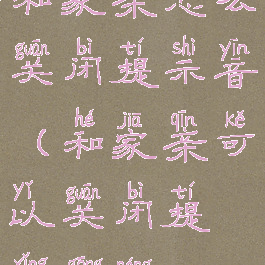 和家亲怎么
guān bì tí shì yīn
关闭提示音
hé jiā qīn kě
（和家亲可
yǐ guān bì tí
以关闭提